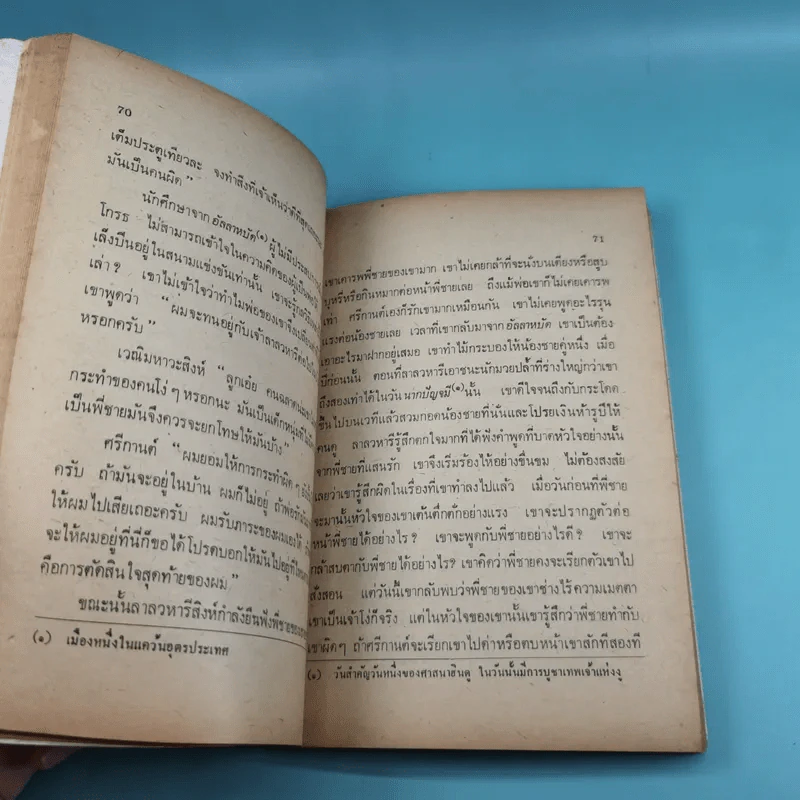 70
เต็มประตูเทียวละ จงทำสิ่งที่เจ้าเห็นว่าดีที่สุด
มันเป็นคนผิด”
นักศึกษาจาก อัลลาหบัด(๑) ผู้ไม่มี
โกรธ ไม่สามารถเข้าใจในความคิดของผู้
เล็งปืนอยู่ในสนามแข่งขันเท่านั้น เขาจะรู้
เล่า ? เขาไม่เข้าใจว่าทำไมพ่อของเขาจึง
เขาพูดว่า “ผมจะทนอยู่กับเจ้าลาลวหารี
หรอกครับ”
เวณิมหาวะสิงห์ “ลูกเอ๋ย คนฉลาด
กระทำของคนโง่ ๆ หรอกนะ มันเป็นเด็กหนุ่ม
เป็นพี่ชายมันจึงควรจะยกโทษให้มันบ้าง”
ศรีกานต์ “ผมยอมให้การกระทำผิด ๆ
ครับ ถ้ามันจะอยู่ในบ้าน ผมก็ไม่อยู่ ถ้าพ่อรัก
ให้ผมไปเสียเถอะครับ ผมรับภาระของผมเองได้
จะให้ผมอยู่ที่นี่ก็ขอได้โปรดบอกให้มันไปอยู่ที่
คือการตัดสินใจสุดท้ายของผม”
ขณะนั้นลาลวหารีสิงห์กำลังยืนฟังพี่ชาย
(๑) เมืองหนึ่งในแคว้นอุตรประเทศ
71
เขาเคารพพี่ชายของเขามาก เขาไม่เคยกล้าที่จะนั่งบนเตียงหรือสูบ
บุหรี่หรือกินหมากต่อหน้าพี่ชายเลย ถึงแม้พ่อเขาก็ไม่เคยเคารพ
เท่า ศรีกานต์เองก็รักเขามากเหมือนกัน เขาไม่เคยพูดอะไรรุน
แรงต่อน้องชายเลย เวลาที่เขากลับมาจาก อัลลาหบัด เขาเป็นต้อง
เอาอะไรมาฝากอยู่เสมอ เขาทำไม้กระบองให้น้องชายคู่หนึ่ง เมื่อ
ปีก่อนนั้น ตอนที่ลาลวหารีเอาชนะนักมวยปล้ำที่ร่างใหญ่กว่าเขา
ถึงสองเท่าได้ในวัน นากปัญจมี(๑) นั้น เขาดีใจจนถึงกับกระโดด
ขึ้นไปบนเวทีแล้วสวมกอดน้องชายที่นั่นและโปรยเงินห้ารูปีให้
คนดู ลาลวหารีรู้สึกตกใจมากที่ได้ฟังคำพูดที่บาดหัวใจอย่างนั้น
จากพี่ชายที่แสนรัก เขาจึงเริ่มร้องไห้อย่างขื่นขม ไม่ต้องสงสัย
เลยว่าเขารู้สึกผิดในเรื่องที่เขาทำลงไปแล้ว เมื่อวันก่อนที่พี่ชาย
จะมานั้นหัวใจของเขาเต้นตึกตั่กอย่างแรง เขาจะปรากฏตัวต่อ
หน้าพี่ชายได้อย่างไร ? เขาจะพูดกับพี่ชายอย่างไรดี ? เขาจะ
กล้าสบตากับพี่ชายได้อย่างไร? เขาคิดว่าพี่ชายคงจะเรียกตัวเขาไป
สั่งสอน แต่วันนี้เขากลับพบว่าพี่ชายของเขาช่างไร้ความเมตตา
เขาเป็นเจ้าโง่ก็จริง แต่ในหัวใจของเขานั้นเขารู้สึกว่าพี่ชายทำกับ
เขาผิด ๆ ถ้าศรีกานต์จะเรียกเขาไปด่าหรือตบหน้าเขาสักทีสองที
(๑) วันสำคัญวันหนึ่งของศาสนาฮินดู ในวันนั้นมีการบูชาเทพเจ้าแห่งงู